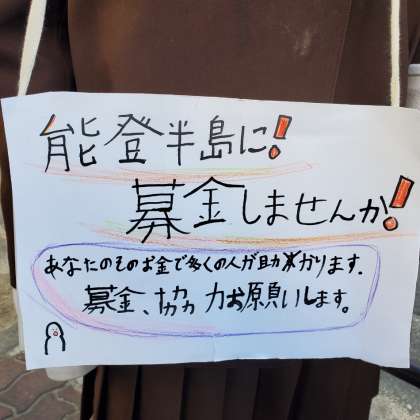 能登半島に!
募金しませんか!
あなたのそのお金で多くの人が助かります.
募金、協力お願いします。